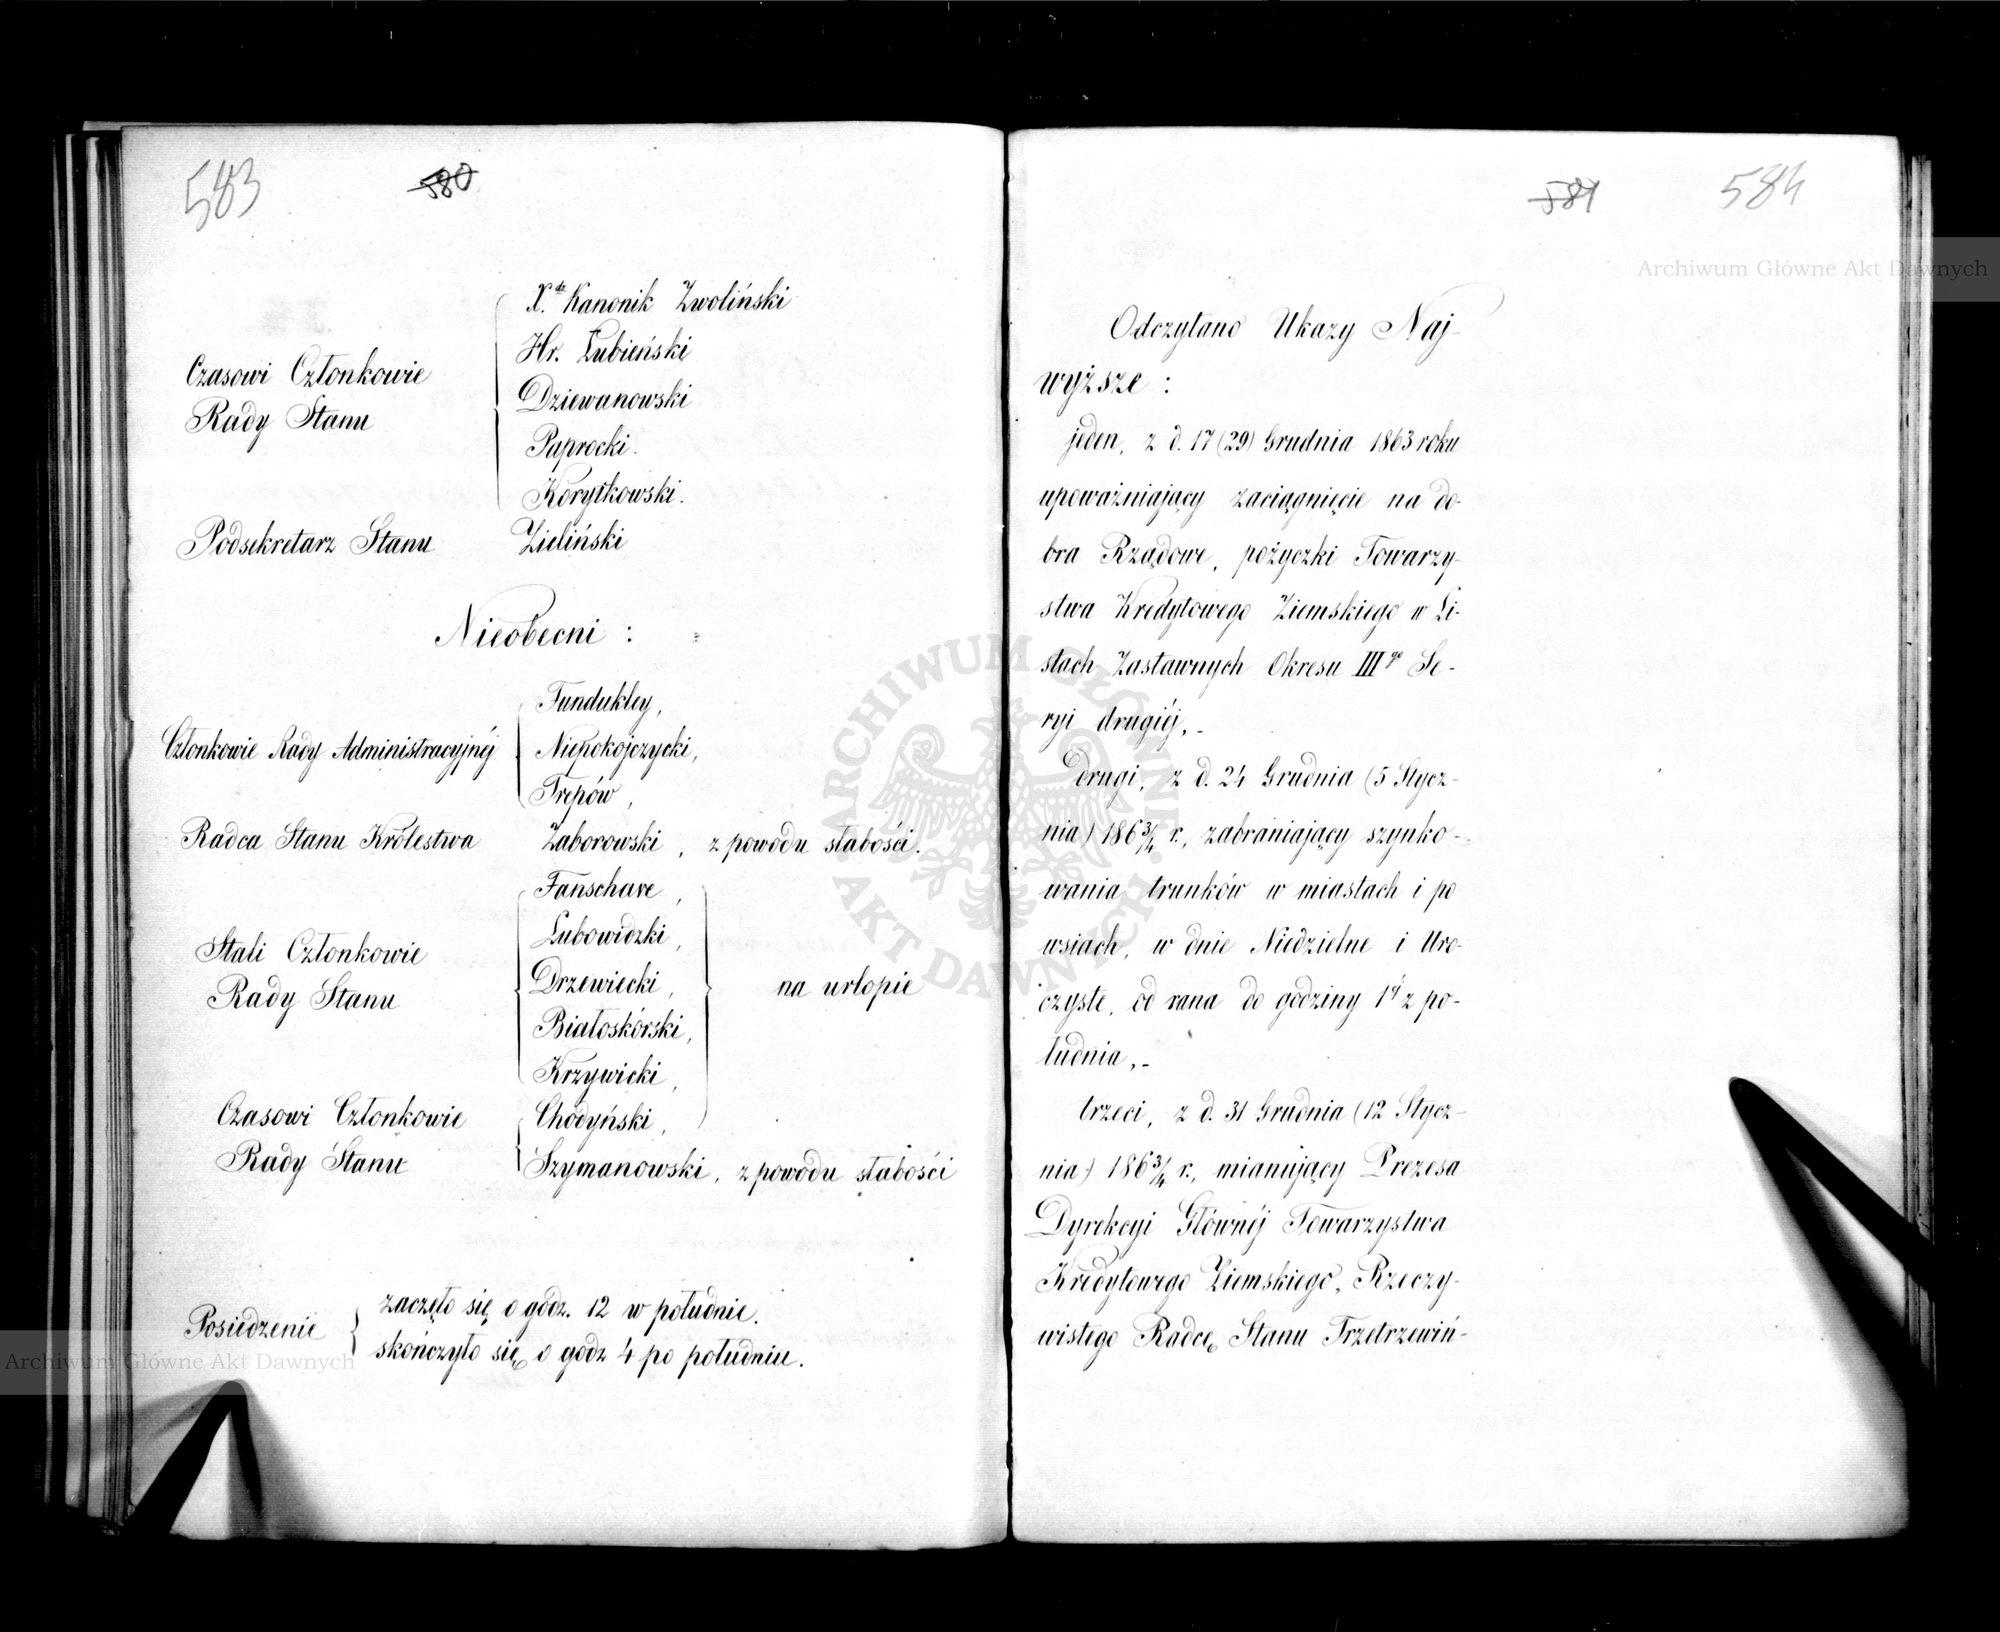 583
580
X.dz Kanonik Zwoliński
Hr. Łubieński
Czasowi Członkowie
Dziewanowski
Rady Stanu
Paprocki.
Korytkowski.
Podsekretarz Stanu Zieliński
Nieobecni :
Fundukley,
Członkowie Rady Administracyjnéj Niepokojczycki,
Trepów,
Radca Stanu Królestwa Zaborowski, z powodu słabości.
Fanschave,
Lubowidzki,
Stali Członkowie
Drzewiecki, na urlopie
Rady Stanu
Białoskórski,
Krzywicki,
Czasowi Członkowie Chodyński,
Rady Stanu Szymanowski, z powodu słabości
zaczęło się o godz. 12 w południe.
Posiedzenie
skończyło się o godz 4 po południu.
Archiwum Główne Akt Dawnych
581
584
Archiwum Główne Akt Dawnych
Odczytano Ukazy Naj-
wyższe :
jeden, z d. 17 (29) Grudnia 1863 roku
upoważniający zaciągnięcie na do-
bra Rządowe, pożyczki Towarzy-
stwa Kredytowego Ziemskiego w Li-
stach Zastawnych Okresu IIIgo Se-
ryi drugiéj,-
drugi, z d. 24 Grudnia (5 Stycz-
nia) 1863/4 r., zabraniający szynko-
wania trunków w miastach i po
wsiach, w dnie Niedzielne i Uro-
czyste, od rana do godziny 1éj z po-
łudnia,-
trzeci, z d. 31 Grudnia (12 Stycz-
nia) 1863/4 r., mianujący Prezesa
Dyrekcyi Głównéj Towarzystwa
Kredytowego Ziemskiego, Rzeczy-
wistego Radcę Stanu Trzetrzewiń-
ARCHIWUM GŁÓWNE AKT DAWNYCH